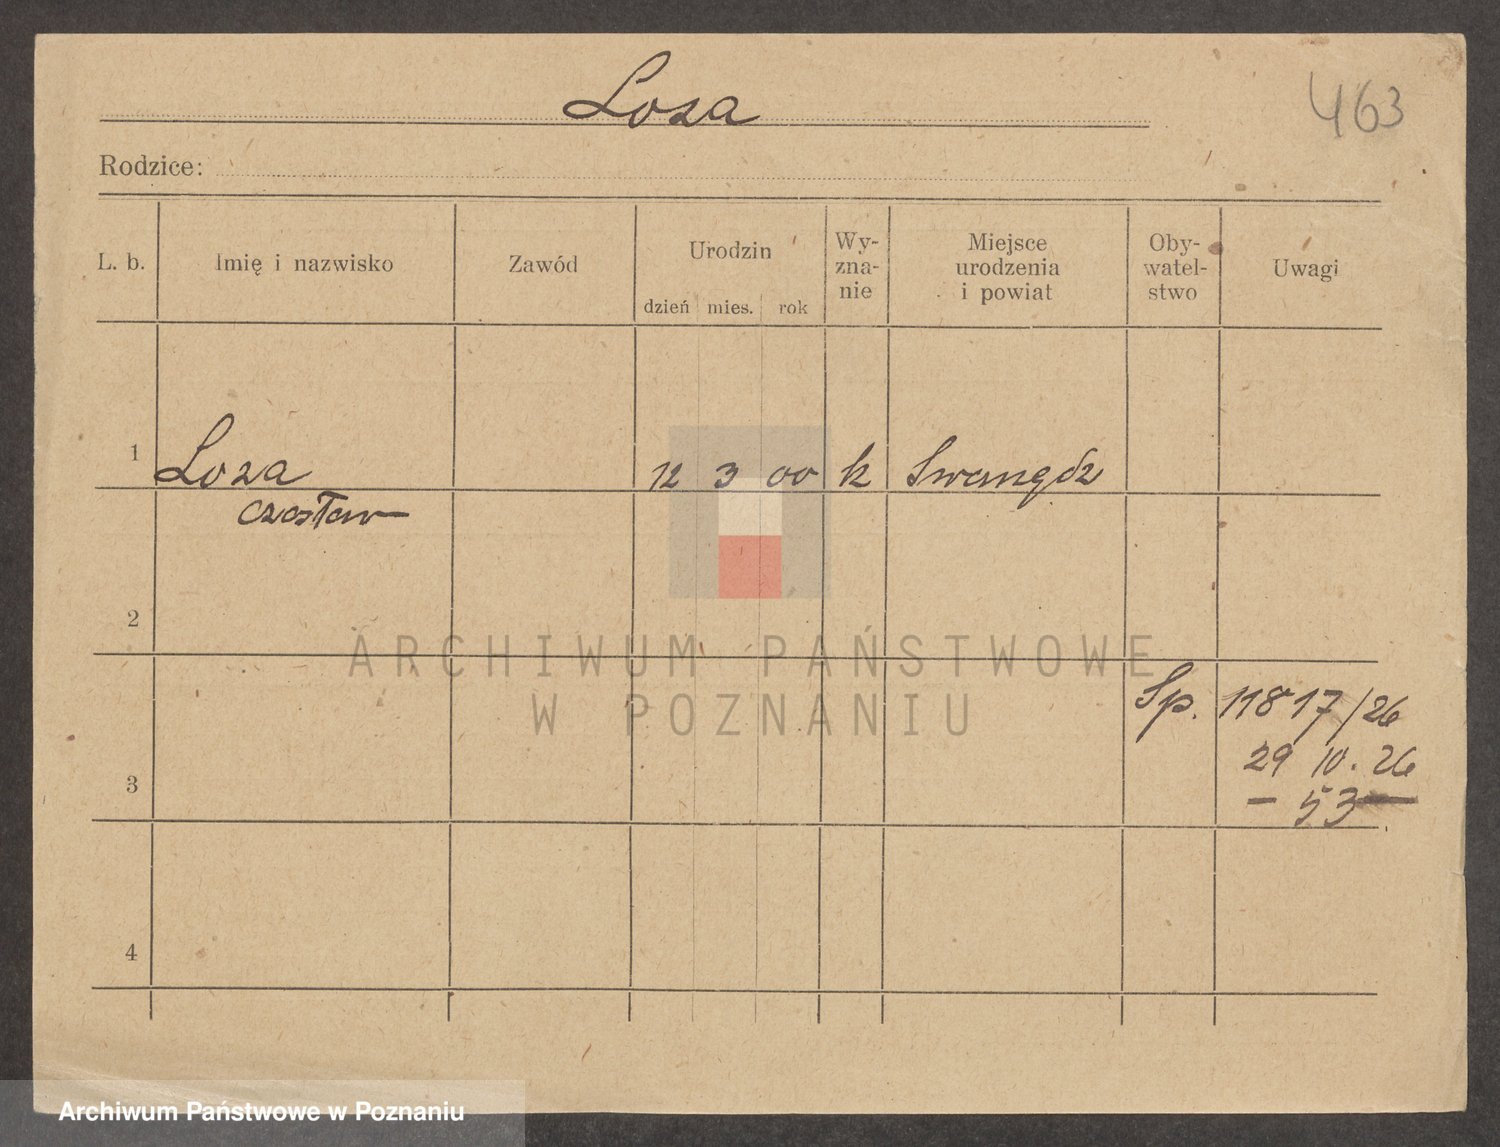 Loza
463
Rodzice:
L. b. Imię i nazwisko Zawód Urodzin dzień mies. rok Wy-zna-nie Miejsce urodzenia i powiat Oby-watel-stwo Uwagi
1 Loza 12 3 00 k Swarzędz
Czesław
2
ARCHIWUM PAŃSTWOWE
W POZNANIU
Sp. 11817/26
29 10. 26
3 — 53 —
4
Archiwum Państwowe w Poznaniu